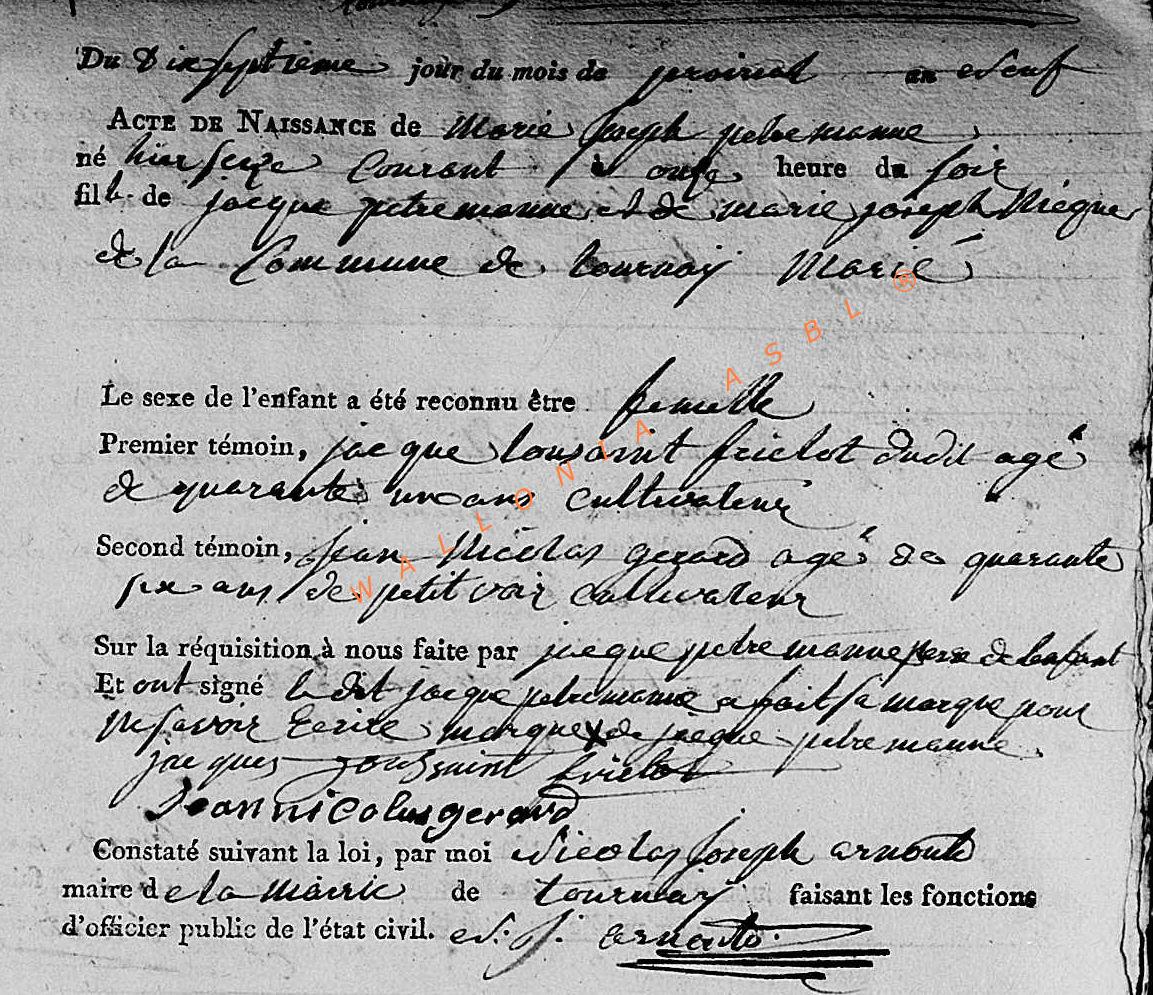 Du Dixseptième jour du mois de prairial an Neuf
ACTE DE NAISSANCE de Marie Joseph petremanne
né hier seize Courant à onze heure du soir
fille de jacque petremanne et de marie joseph
de la Commune de tournay Marié
Le sexe de l'enfant a été reconnu être femelle
Premier témoin, jacque tousaint frielot dudit agé
de quarante un ans cultivateur
Second témoin, jean Nicolas gerard agé de quarante
six ans de petit voir cultivateur
Sur la réquisition à nous faite par jacque petremanne pere de lenfant
Et ont signé le dit jacque petremanne a fait sa marque pour
ne savoir Ecrire marque X de jacque petremanne
jacques toussaint frielot
Jean nicolas gerard
Constaté suivant la loi, par moi Nicolas Joseph arnould
maire de la Mairie de tournay faisant les fonctions
d'officier public de l'état civil. N. J. arnould
WALLONIA ASBL ®